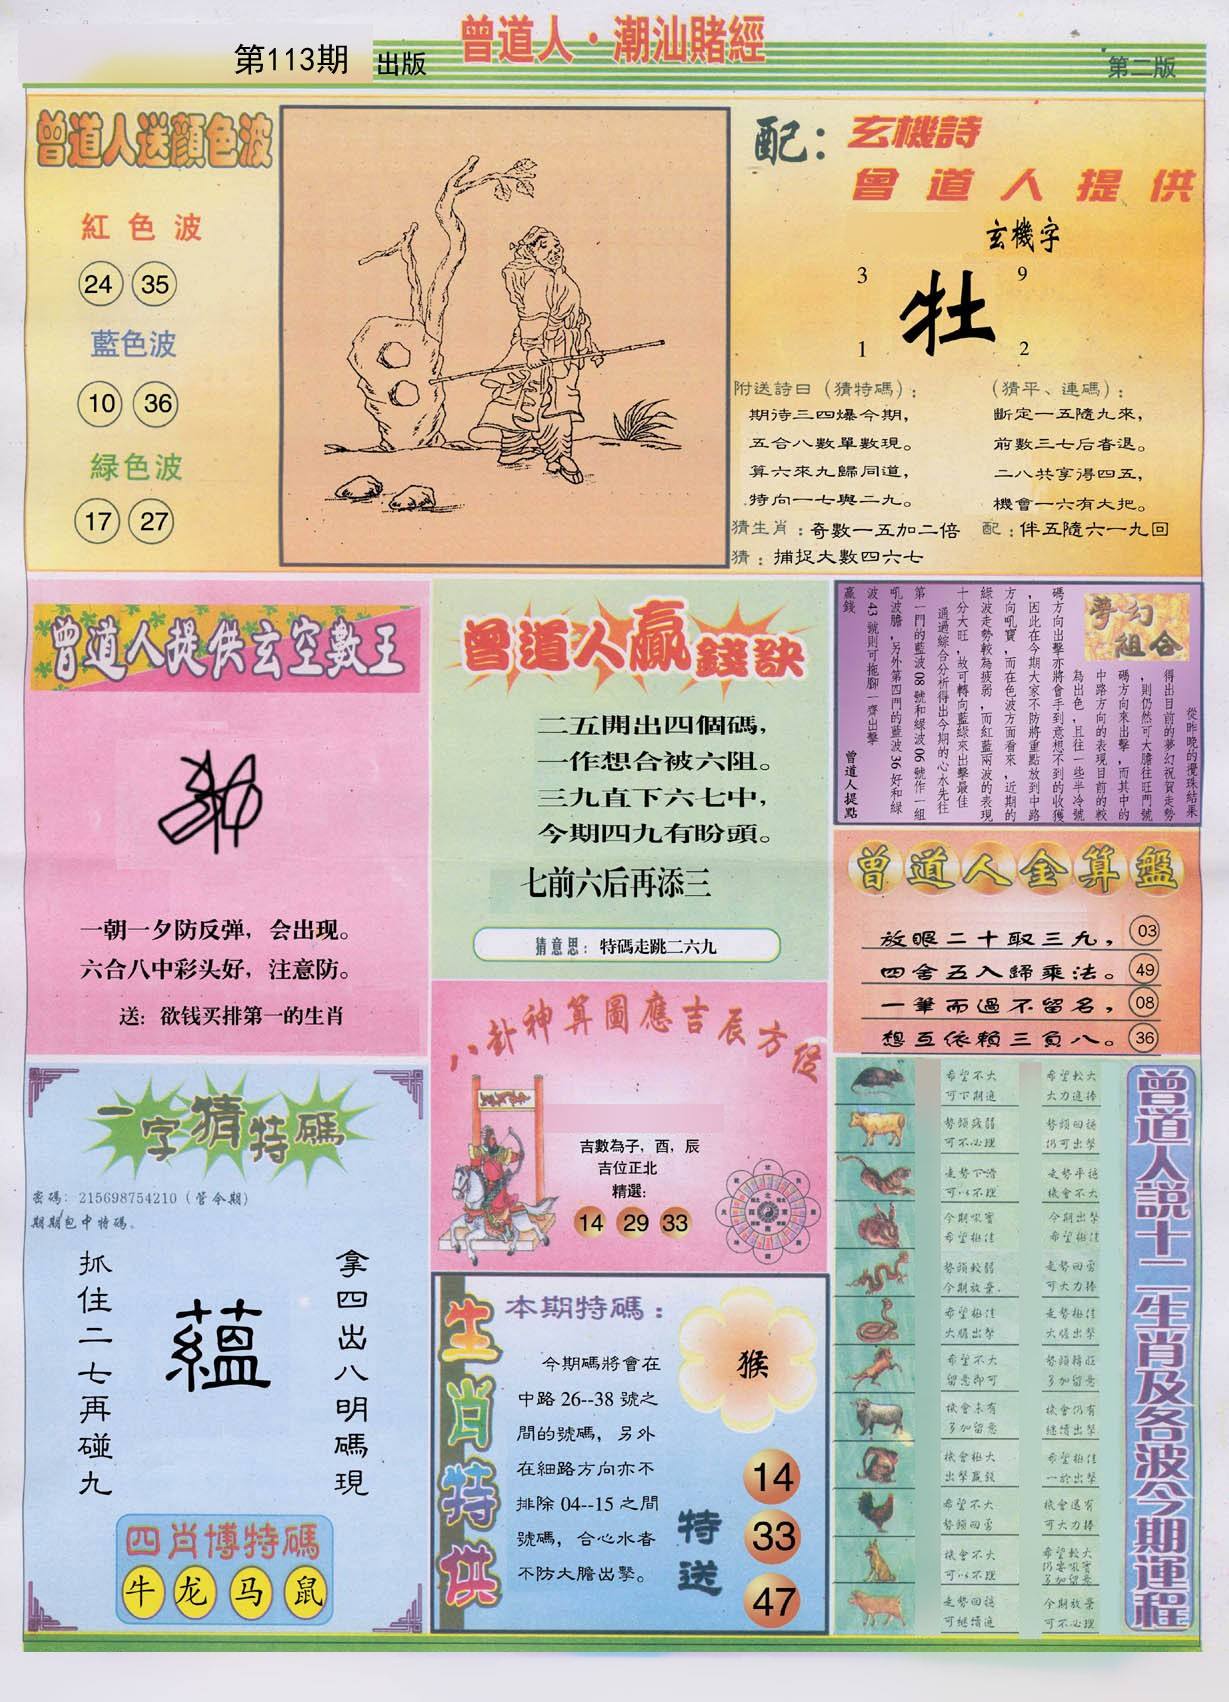 第113期 出版
曾道人·潮汕賭經
第二版
曾道人送顏色波
紅色波
24 35
藍色波
10 36
緑色波
17 27
配：玄機詩
曾道人提供
玄機字
3 9
牡
1 2
附送詩曰（猜特碼）：
期待三四爆今期，
五合八數單數現。
算六來九歸同道，
特向一七與二九。
（猜平、連碼）：
斷定一五隨九來，
前數三七后者退。
二八共享得四五，
機會一六有大把。
猜生肖：奇數一五加二倍
配：伴五隨六一九回
猜：捕捉大數四六七
曾道人提供玄空數王
一朝一夕防反弹，会出现。
六合八中彩头好，注意防。
送：欲钱买排第一的生肖
曾道人贏錢訣
二五開出四個碼，
一作想合被六阻。
三九直下六七中，
今期四九有盼頭。
七前六后再添三
猜意思：特碼走跳二六九
夢幻組合
從昨晚的攪珠結果
得出目前的夢幻祝賀走勢
，則仍然可大膽往旺門號
碼方向來出擊，而其中的
中路方向的表現目前的較
為出色，且往一些半冷號
碼方向出擊亦將會手到意想不到的收獲
，因此在今期大家不防將重點放到中路
方向吼寶，而在色波方面看來，近期的
綠波走勢較為疲弱，而紅藍兩波的表現
十分大旺，故可轉向藍綠來出擊最佳
通過綜合分析得出今期的心水先往
第一門的藍波08號和綠波06號作一組
吼波膽，另外第四門的藍波36好和綠
波43號則可拖腳一齊出擊
贏錢
曾道人提點
曾道人金算盤
放眼二十取三九， 03
四舍五入歸乘法。 49
一筆而過不留名， 08
想互依賴三負八。 36
八卦神算圖應吉辰方位
吉數為子，酉，辰
吉位正北
精選:
14 29 33
一字猜特碼
密碼：215698754210（管令期）
期期包中特碼。
抓住二七再碰九
蘊
拿四出八明碼現
四肖博特碼
牛 龙 马 鼠
生肖特供
本期特碼：
今期碼將會在
中路26--38號之
間的號碼，另外
在細路方向亦不
排除04--15之間
號碼，合心水者
不防大膽出擊。
猴
特送
14
33
47
曾道人説十二生肖及各波今期運程
希望不大
可下期進
希望較大
大力進捧
勢頭殘弱
可不必理
勢頭回穩
仍可出擊
走勢下滑
可以不理
走勢平穩
機會不大
今期吼寶
希望極佳
今期出擊
希望極佳
勢頭較弱
今期放棄.
走勢回勇
可大力捧
希望極佳
大膽出擊
走勢極佳
大膽出擊
希望不大
留意即可
勢頭轉旺
多加留意
機會未有
多加留意
機會仍有
繼續出擊
機會極大
出擊贏錢
希望極佳
一於出擊
希望不大
勢頭回勇
機會還有
可大力捧
機會不大
可以不理
希望較大
仍要吼寶
多加留意
走勢回穩
可繼續進
今期放棄
可不必理